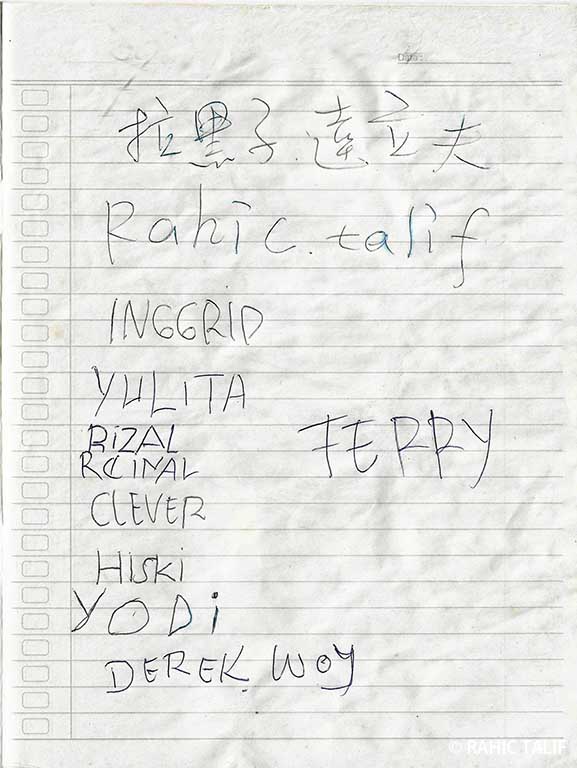 Date:
拉黑子.達立夫
Rahic.talif
INGGRID
YULITA
RIZAL
FERRY
CLEVER
Hiski
YODi
DEREK WOY
© RAHIC TALIF